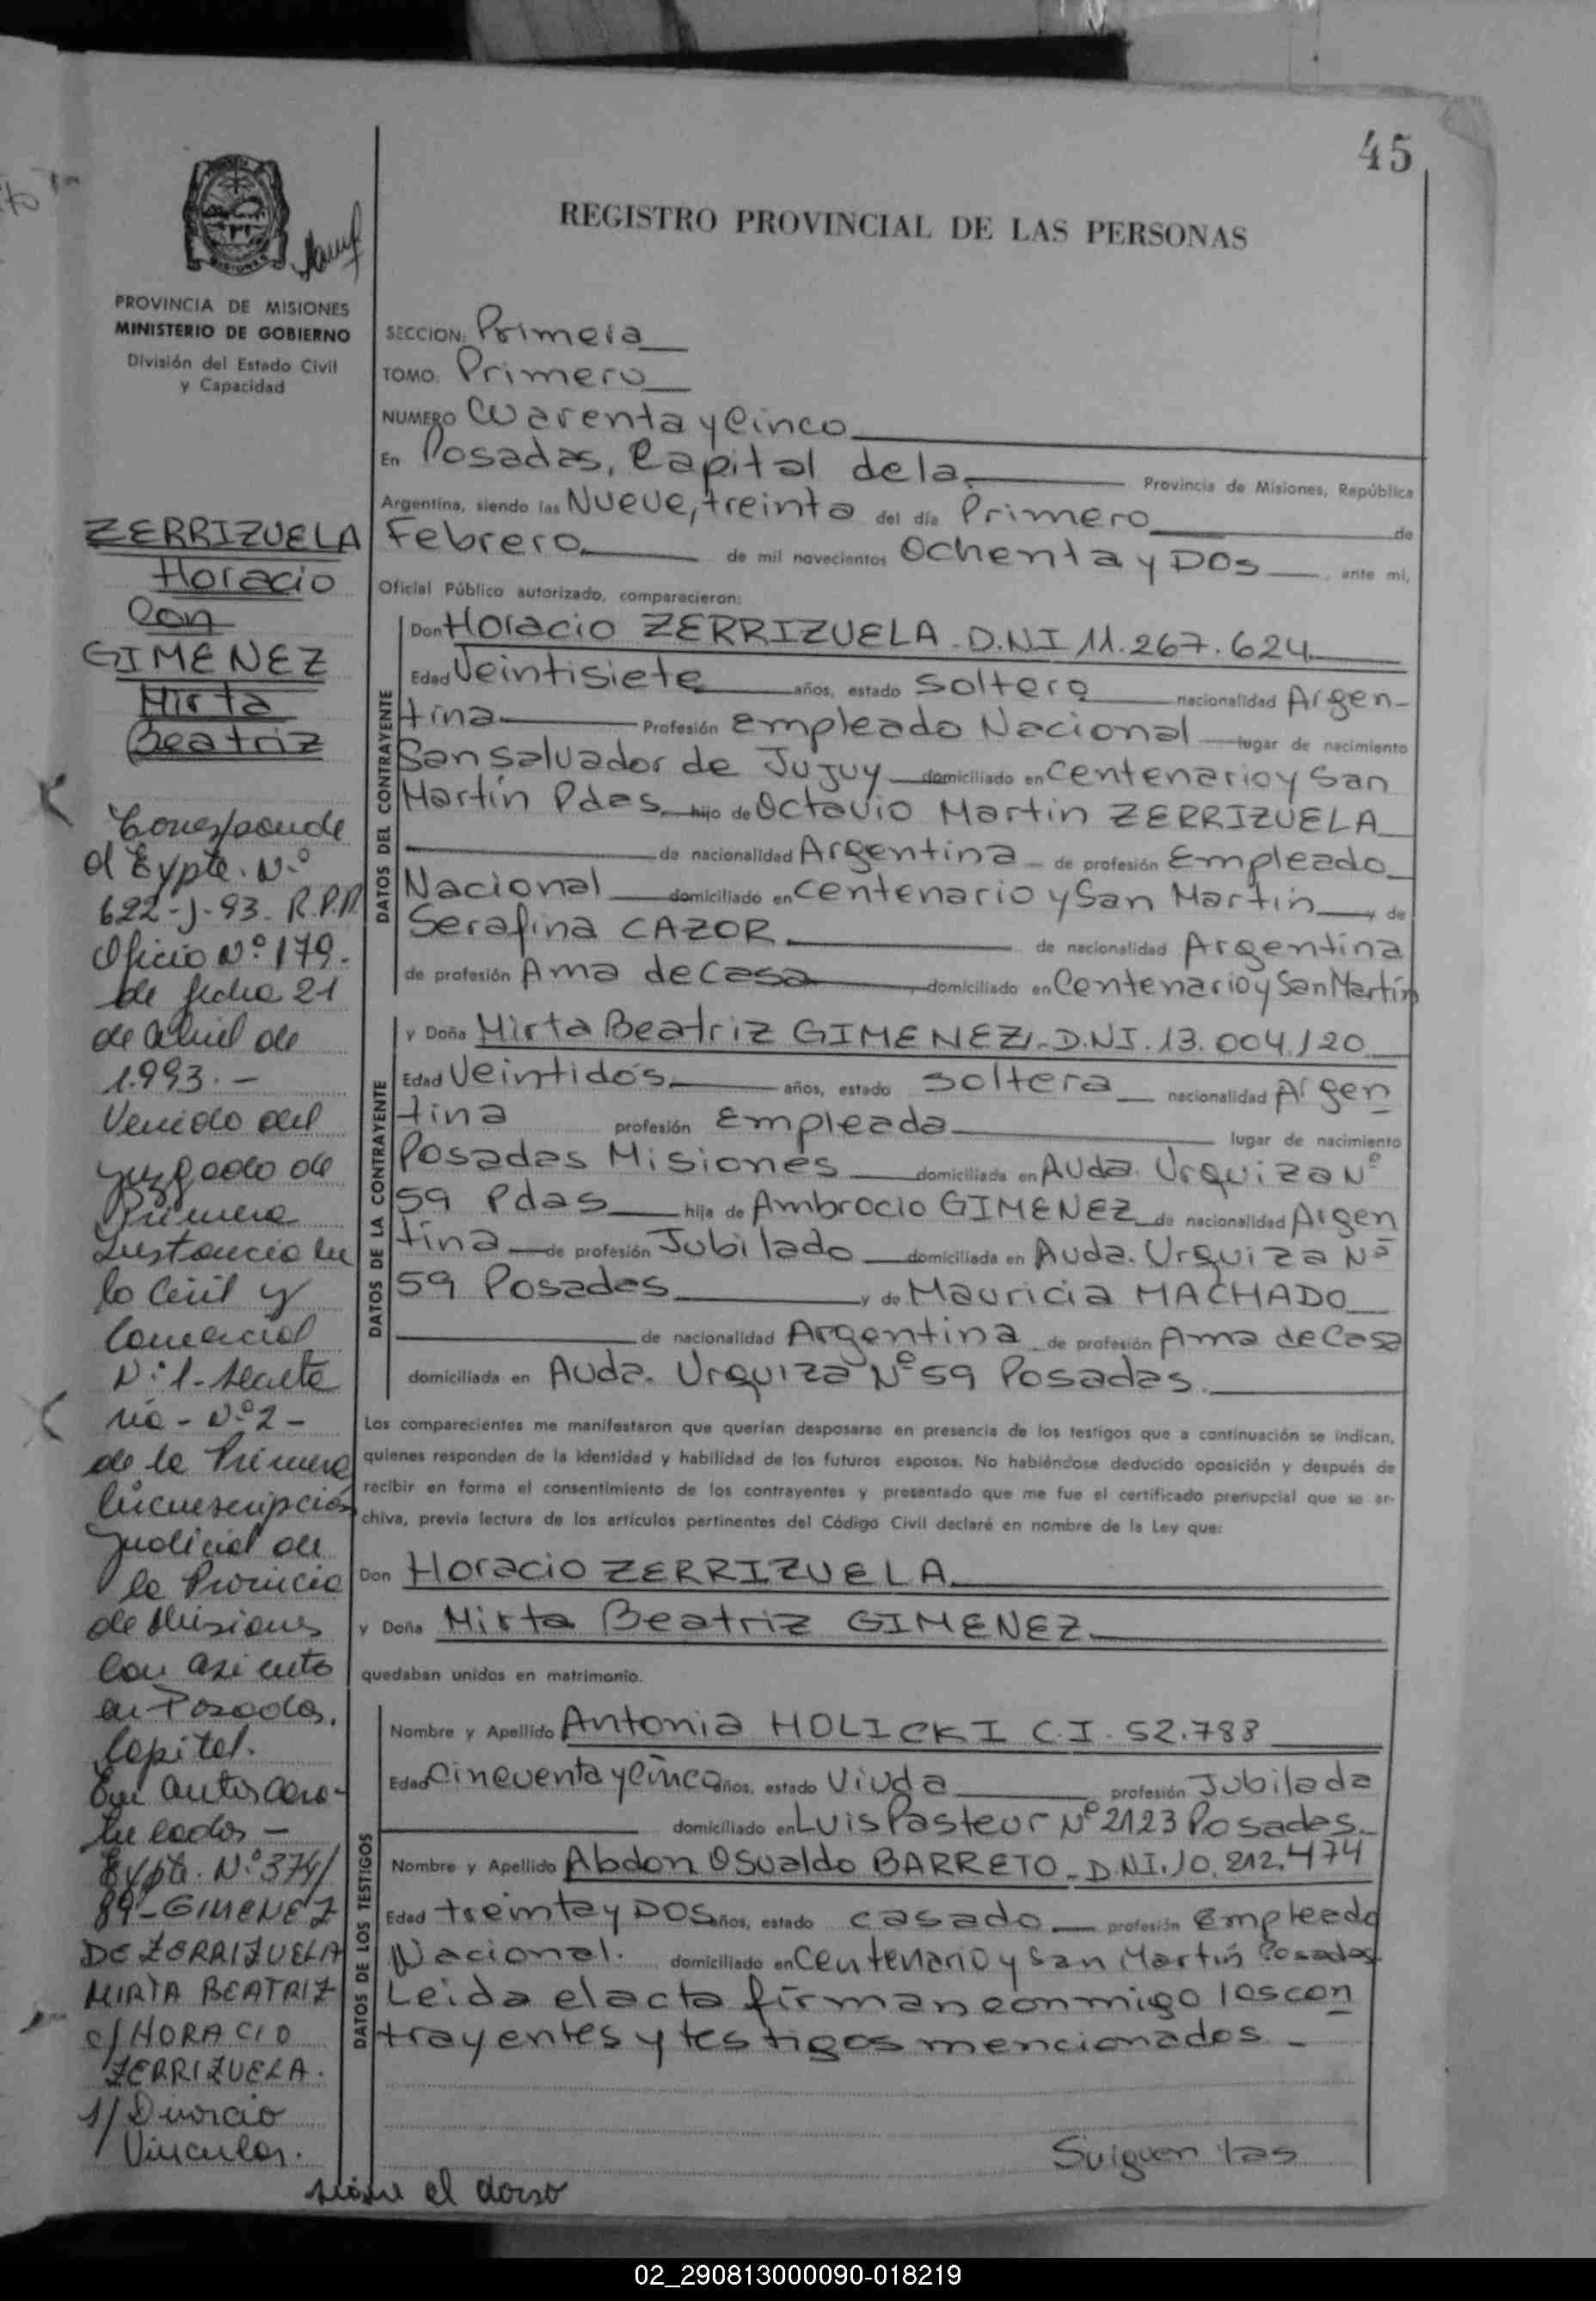 45
REGISTRO PROVINCIAL DE LAS PERSONAS
PROVINCIA DE MISIONES
MINISTERIO DE GOBIERNO
División del Estado Civil
y Capacidad
ZERRIZUELA
Horacio
Con
GIMENEZ
Mirta
Beatriz
Corresponde
al Expte. Nº
622-J-93- R.P.P.
Oficio Nº 179-
de fecha 21
de abril de
1.993.-
Venido del
Juzgado de
Primera
Instancia en
lo Civil y
Comercial
Nº 1- Secreta
ria - Nº 2 -
de la Primera
Circunscripción
Judicial de
la Provincia
de Misiones
con asiento
en Posadas,
Capital.
En autos cara-
tulados -
Expte. Nº 374/
89 - GIMENEZ
DE ZERRIZUELA
MIRTA BEATRIZ
c/ HORACIO
ZERRIZUELA.
s/ Divorcio
Vincular.
sigue el dorso
SECCION: Primera
TOMO: Primero
NUMERO Cuarenta y Cinco
En Posadas, Capital de la Provincia de Misiones, República
Argentina, siendo las Nueve, treinta del día Primero de
Febrero de mil novecientos Ochenta y Dos, ante mi,
Oficial Público autorizado, comparecieron:
DATOS DEL CONTRAYENTE
Don Horacio ZERRIZUELA - D.N.I 11.267.624
Edad Veintisiete años, estado soltero nacionalidad Argen-
tina Profesión Empleado Nacional lugar de nacimiento
San Salvador de Jujuy domiciliado en Centenario y San
Martín Pdas hijo de Octavio Martin ZERRIZUELA
de nacionalidad Argentina de profesión Empleado
Nacional domiciliado en Centenario y San Martin y de
Serafina CAZOR de nacionalidad Argentina
de profesión Ama de Casa domiciliado en Centenario y San Martín
DATOS DE LA CONTRAYENTE
y Doña Mirta Beatriz GIMENEZ - D.N.I. 13.004.120
Edad Veintidós años, estado soltera nacionalidad Argen
tina profesión Empleada lugar de nacimiento
Posadas Misiones domiciliada en Avda. Urquiza Nº
59 Pdas hija de Ambrocio GIMENEZ de nacionalidad Argen
tina de profesión Jubilado domiciliada en Avda. Urquiza Nº
59 Posadas y de Mauricia MACHADO
de nacionalidad Argentina de profesión Ama de Casa
domiciliada en Avda. Urquiza Nº 59 Posadas.
Los comparecientes me manifestaron que querían desposarse en presencia de los testigos que a continuación se indican,
quienes responden de la identidad y habilidad de los futuros esposos. No habiéndose deducido oposición y después de
recibir en forma el consentimiento de los contrayentes y presentado que me fue el certificado prenupcial que se ar-
chiva, previa lectura de los artículos pertinentes del Código Civil declaré en nombre de la Ley que:
Don Horacio ZERRIZUELA
y Doña Mirta Beatriz GIMENEZ
quedaban unidos en matrimonio.
DATOS DE LOS TESTIGOS
Nombre y Apellido Antonia HOLICKI C.I. 52.788
Edad Cincuenta y Cinco años, estado Viuda profesión Jubilada
domiciliado en Luis Pasteur Nº 2123 Posadas
Nombre y Apellido Abdon Osvaldo BARRETO - D.N.I. 10.212.474
Edad treinta y Dos años, estado casado profesión Empleado
Nacional. domiciliado en Centenario y San Martin Posadas
Leida el acta firman conmigo los con
trayentes y testigos mencionados -
Suiguen las
02_290813000090-018219